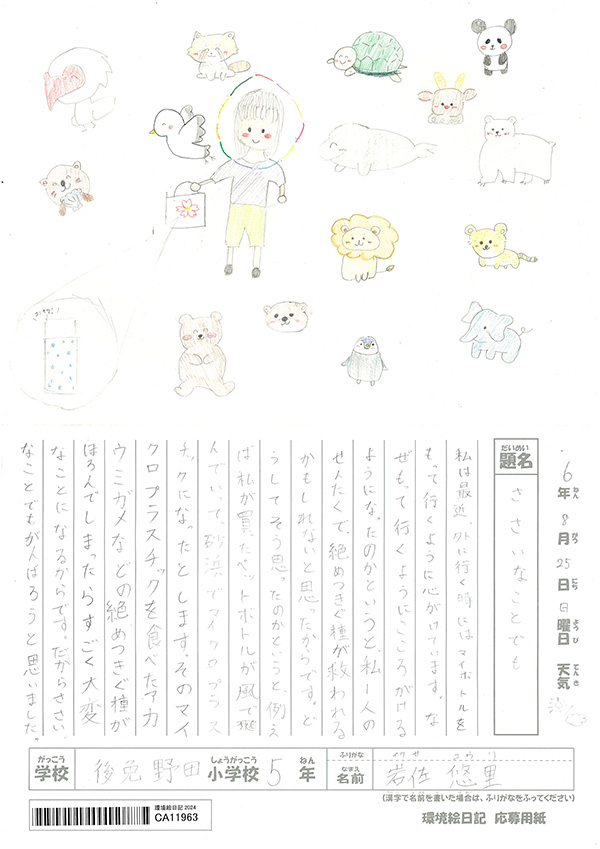 6年8月25日日曜日 天気
ねん がつ にち ようび てんき
だいめい
題名
ささいなことでも
私は最近、外に行く時にはマイボトルを
もって行くように心がけています。な
ぜもって行くようにこころがける
ようになったのかというと、私一人の
せんたくで、絶めつきぐ種が救われる
かもしれないと思ったからです。ど
うしてそう思ったのかというと、例え
ば私が買ったペットボトルが風で
んでいて、砂浜でマイクロプラス
チックになったとします。そのマイ
クロプラスチックを食べたアカ
ウミガメなどの絶めつきぐ種が
ほろんでしまったらすごく大変
なことになるからです。だからささい
なことでもがんばろうと思いました。
がっこう しょうがっこう ねん ふりがな
学校 後免野田 小学校 5年
なまえ
名前 岩佐 悠里
(漢字で名前を書いた場合は、ふりがなをふってください)
環境絵日記 2024
CA11963
環境絵日記 応募用紙